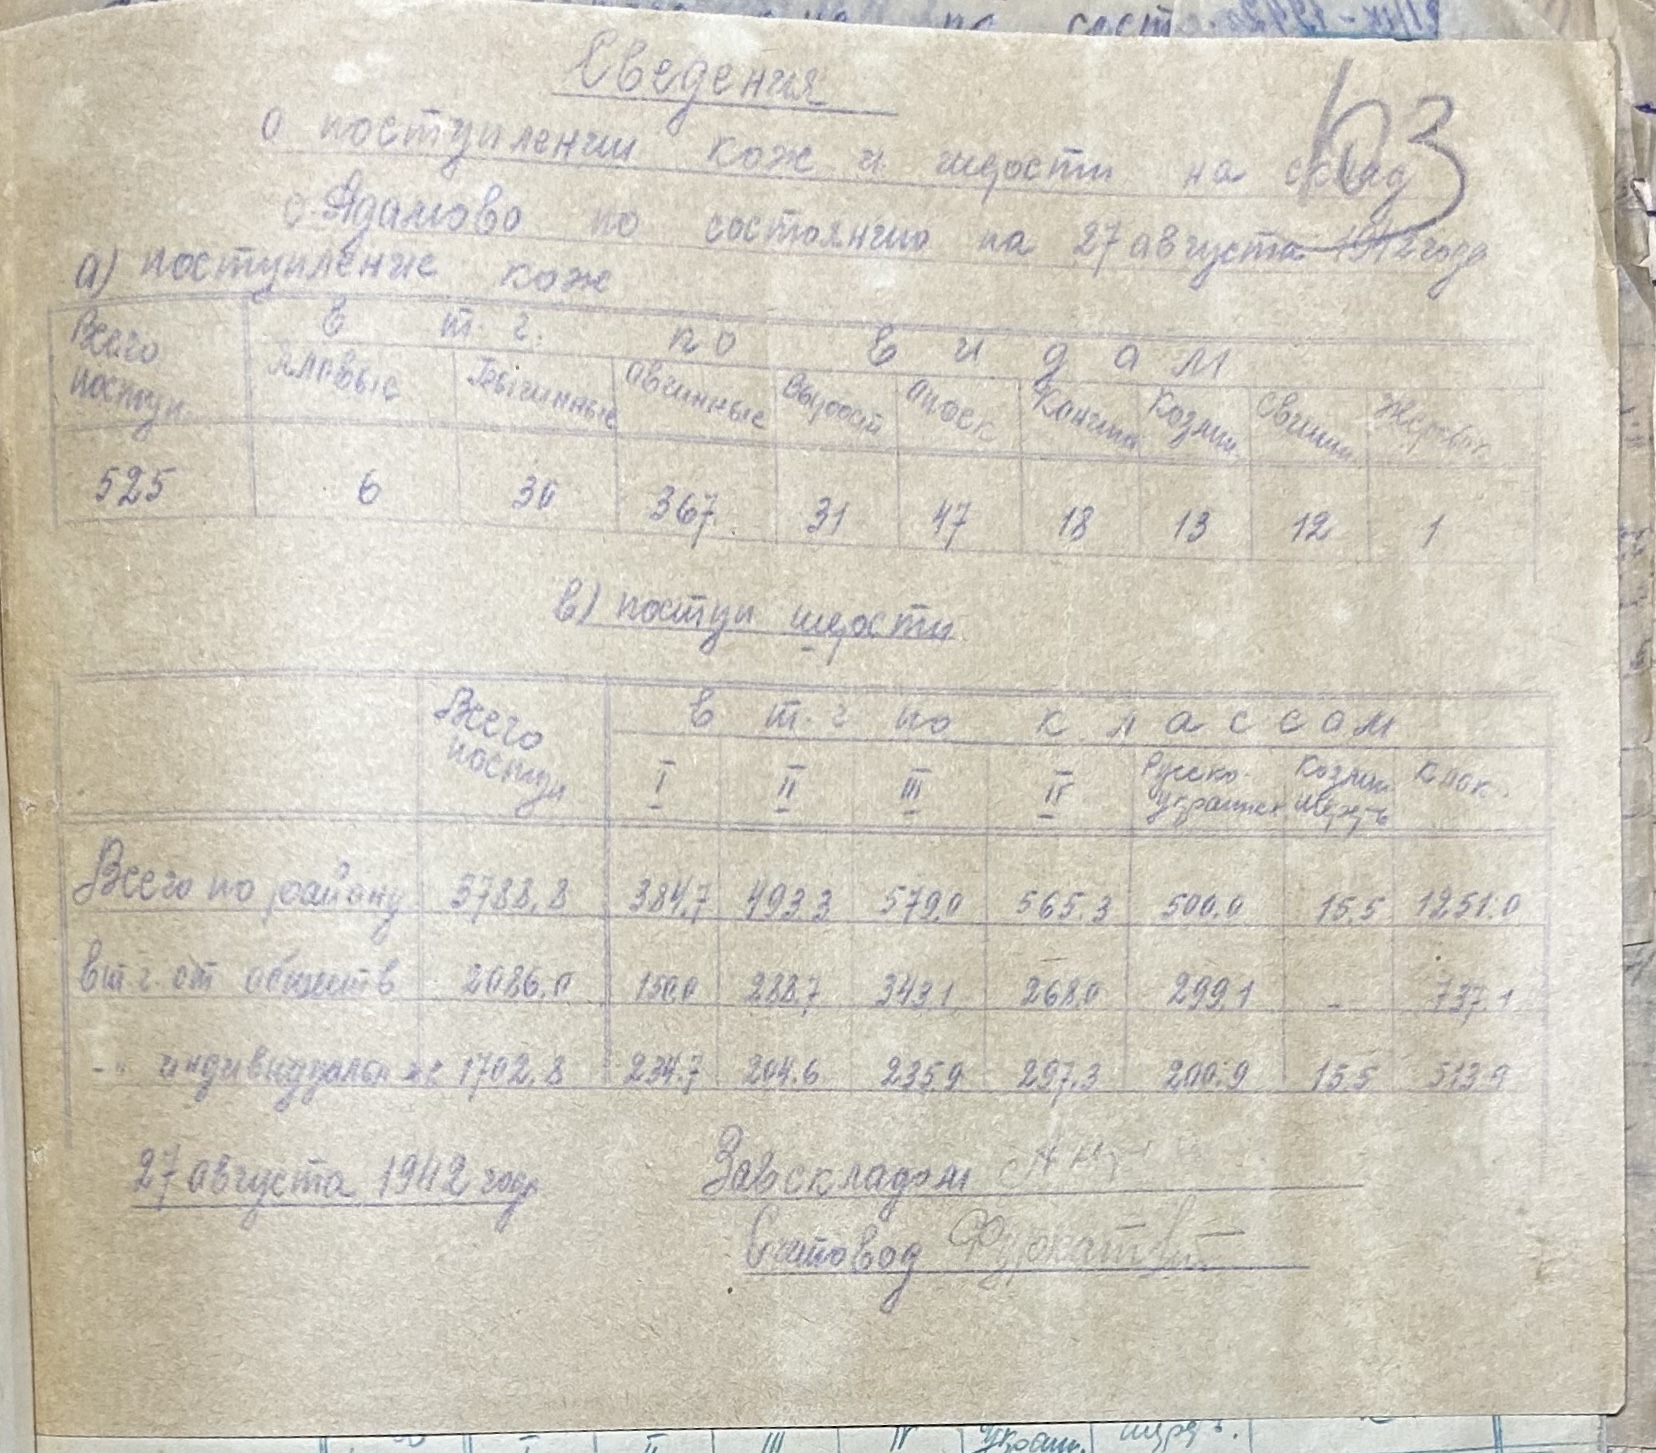 Сведения
63
о поступлении кож и шерсти на склад
с. Адамово по состоянию на 27 августа 1942 года
а) поступление кож
Всего поступ. в т. г. по видам
Яловые Бычинные авчинные Выраост апоек Кончин Козлин. Свинин. Жеребок
525 6 30 367 31 47 18 13 12 1
в) поступ шерсти
Всего поступ в т. г по классам
I II III IV Русско-украинск Козлин шерсть Клок.
Всего по району 3788,8 384,7 493.3 579.0 565.3 500.0 15.5 1251.0
в т. г. от обществ 2086,0 150.0 288,7 343.1 268.0 299.1 - 737.1
-"- индивидуальн же 1702.8 234.7 204.6 235.9 297.3 200.9 15.5 513.9
27 августа 1942 года Завскладом
Счетовод